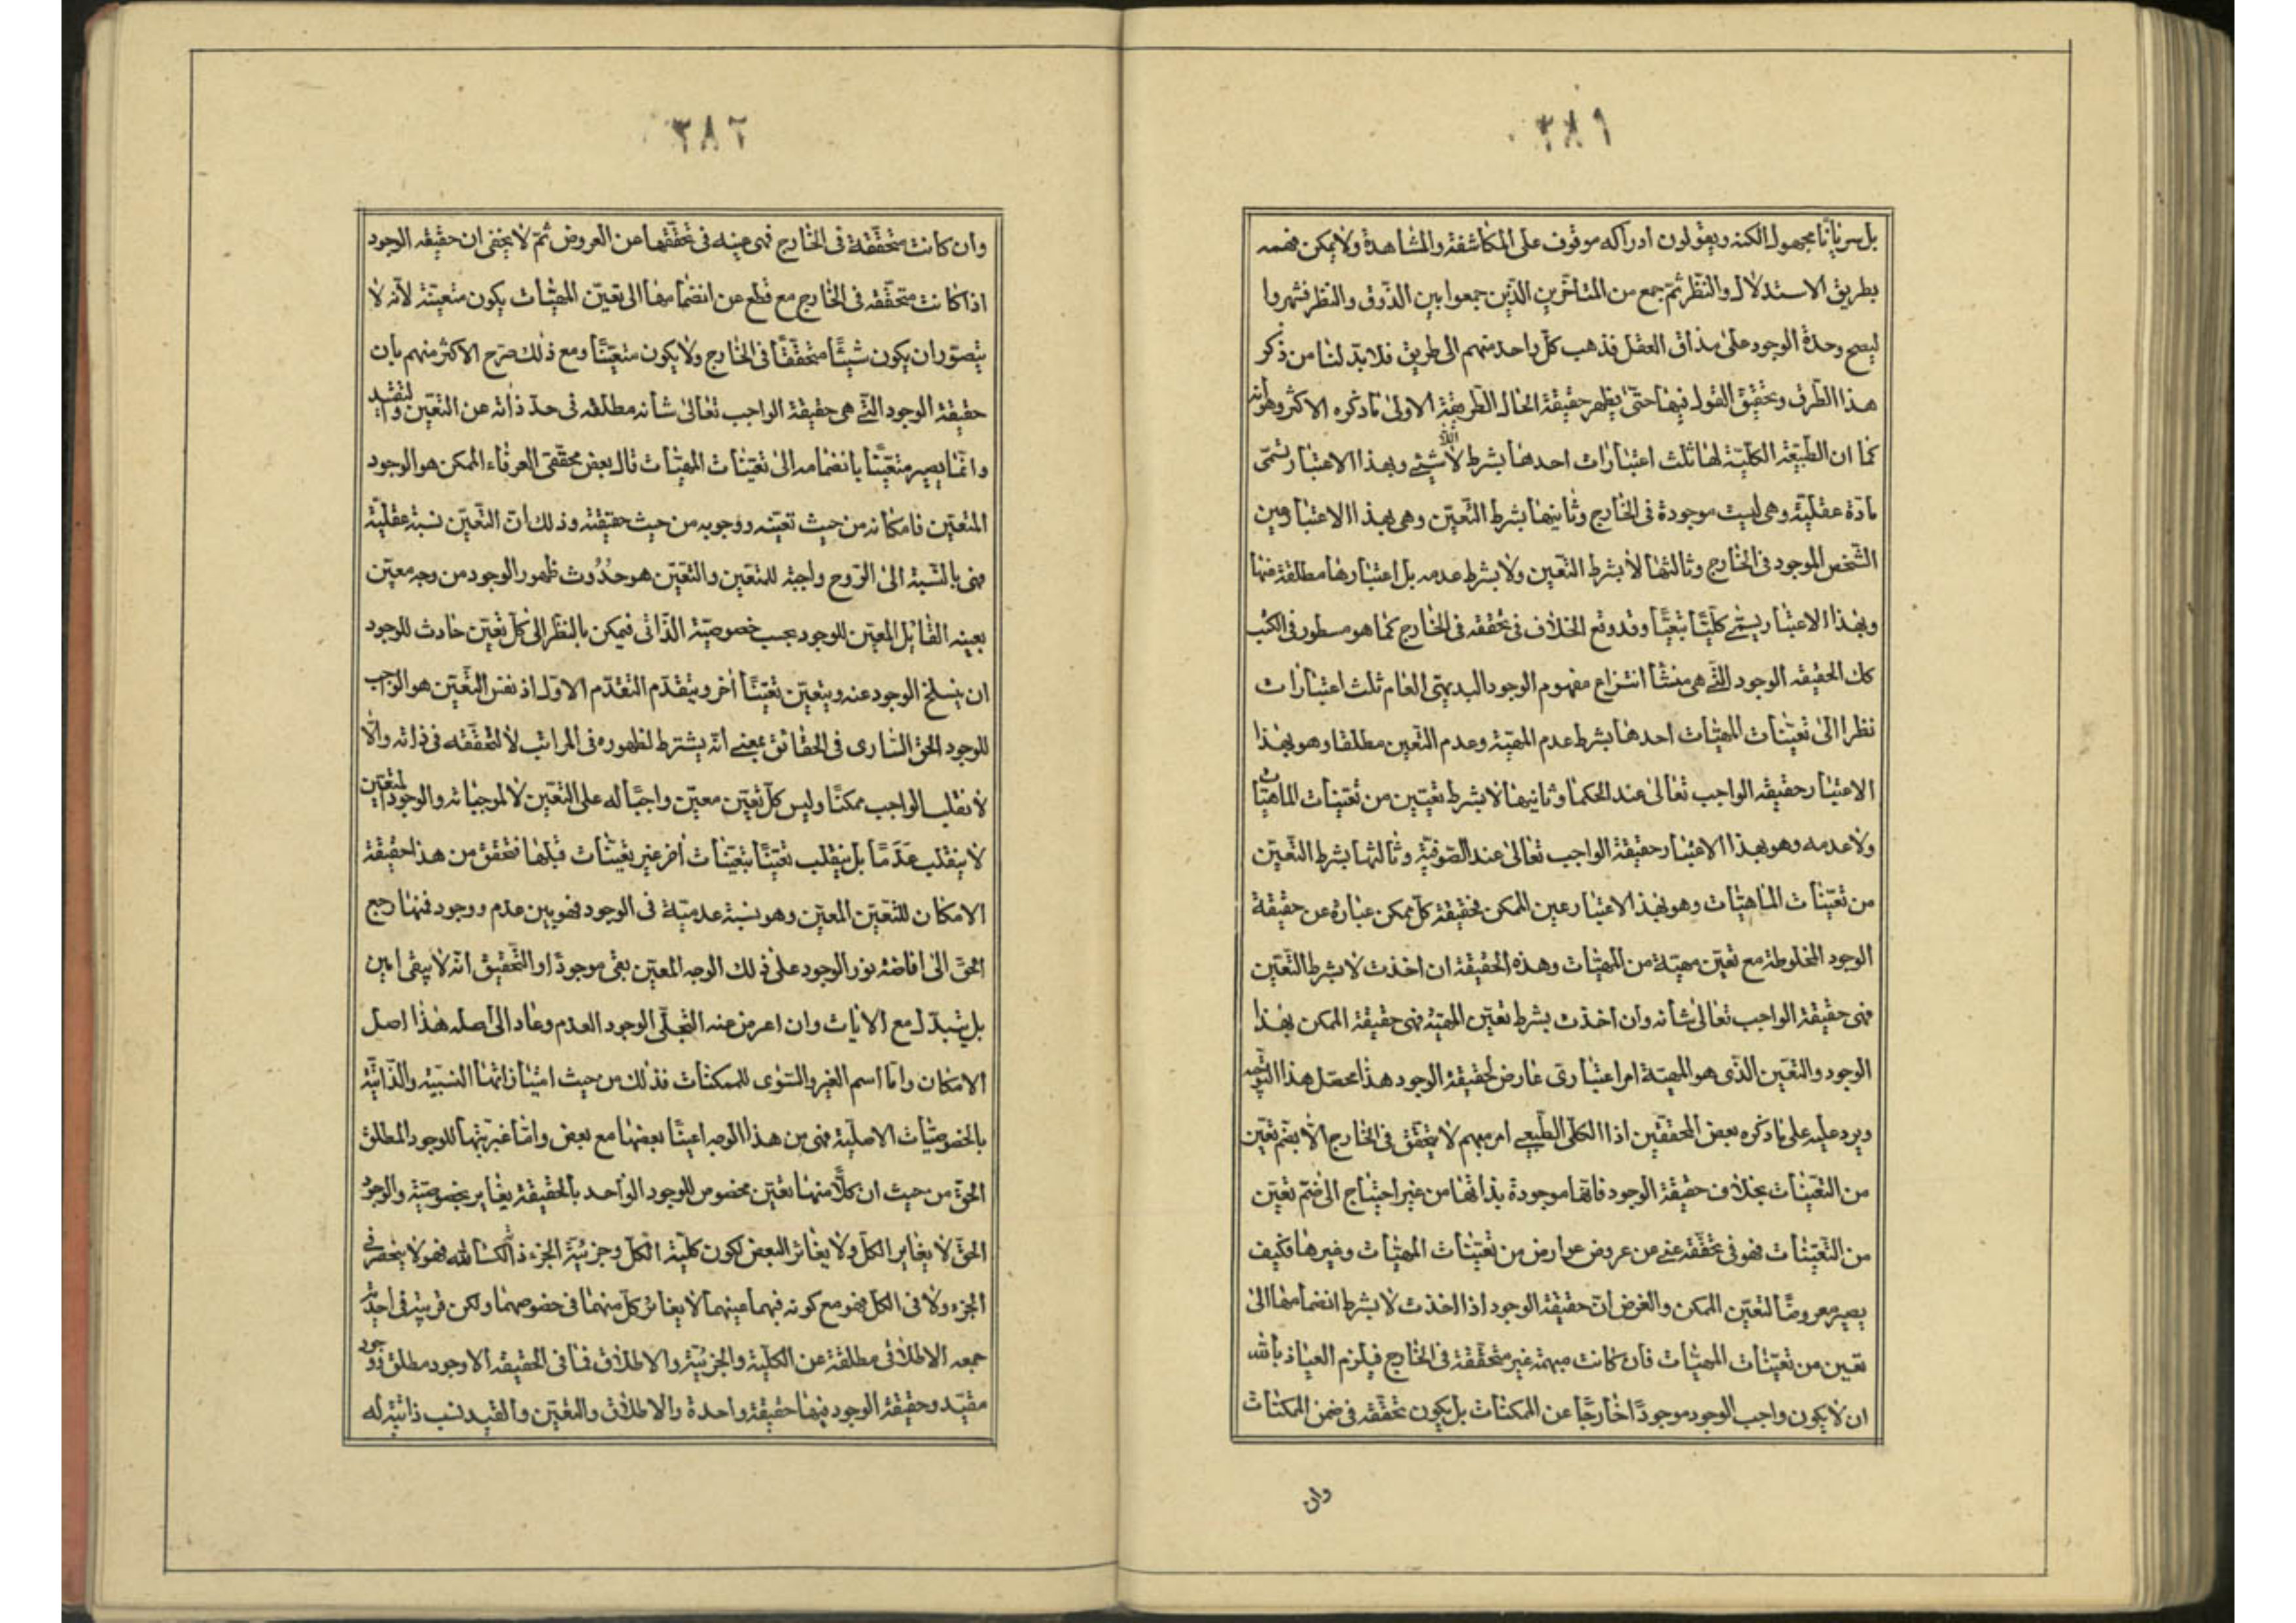 ٣٨١
بل سريانًا مجهول الكنه ويقولون ادراكه موقوف على المكاشفة والمشاهدة ولا يمكن فهمه
بطريق الاستدلال والنظر ثم جمع من المتاخرين الذين جمعوا بين الذوق والنظر فشهروا
ليصح وحدة الوجود على مذاق العقل فذهب كل واحد منهم الى طريق فلابد لنا من ذكر
هذا الطرف وتحقيق القول فيها حتى يظهر حقيقة الحال الطريقة الاولى ما ذكره الاكثر وهو انه
كما ان الطبيعة الكلية لها ثلث اعتبارات احدها بشرط لا شيئ وبهذا الاعتبار تسمى
مادة عقلية وهى ليست موجودة فى الخارج وثانيها بشرط التعين وهى بهذا الاعتبار عين
الشخص الموجود فى الخارج وثالثها لا بشرط التعين ولا بشرط عدمه بل اعتبارها مطلقة منها
وبهذا الاعتبار يسمى كليًا وقد وقع الخلاف فى تحققه فى الخارج كما هو مسطور فى الكتب
كك الحقيقه الوجود التى هى منشأ انتزاع مفهوم الوجود البديهى العام ثلث اعتبارات
نظرا الى تعينات المهيات احدها بشرط عدم المهية وعدم التعين مطلقا وهو بهذا
الاعتبار حقيقه الواجب تعالى عند الحكما وثانيها لا بشرط تعين من تعينات الماهيات
ولا عدمه وهو بهذا الاعتبار حقيقة الواجب تعالى عند الصوفية وثالثها بشرط التعين
من تعينات الماهيات وهو بهذا الاعتبار عين الممكن فحقيقة كل ممكن عبارة عن حقيقة
الوجود المخلوطة مع تعين مهية من المهيات وهذه الحقيقة ان اخذت لا بشرط التعين
فهى حقيقة الواجب تعالى شأنه وان اخذت بشرط تعين المهية فهى حقيقة الممكن بهذا
الوجود والتعين الذى هو المهية امر اعتبارى عارض لحقيقة الوجود هذا محصل هذا التوجيه
ويرد عليه على ما ذكره بعض المحققين اذا الكلى الطبيعى امر مبهم لا يتحقق فى الخارج الا بضم تعين
من التعينات بخلاف حقيقة الوجود فانها موجودة بذاتها من غير احتياج الى ضم تعين
من التعينات فهو فى تحققه غنى عن عروض عوارض من تعينات المهيات وغيرها فكيف
يصير معروضًا لتعين الممكن والغرض ان حقيقة الوجود اذا اخذت لا بشرط انضمامها الى
تعين من تعينات المهيات فان كانت مبهمة غير متحققة فى الخارج فيلزم العياذ بالله
ان لا يكون واجب الوجود موجودًا خارجًا عن الممكنات بل يكون تحققه فى ضمن الممكنات
وان
٣٨٢
وان كانت متحققة فى الخارج فهى عينه فى تحققها عن العروض ثم لا يخفى ان حقيقه الوجود
اذا كانت متحققه فى الخارج مع قطع عن انضمامها الى تعين المهيات يكون متعينة لانه لا
يتصور ان يكون شيئًا متحققًا فى الخارج ولا يكون متعينًا ومع ذلك صرح الاكثر منهم بان
حقيقة الوجود التى هى حقيقة الواجب تعالى شأنه مطلقه فى حد ذاته عن التعين والتقييد
وانما يصير متعينًا بانضمامه الى تعينات المهيات قال بعض محققى العرفاء الممكن هو الوجود
المتعين فامكانه من حيث تعينه ووجوبه من حيث حقيقته وذلك ان التعين نسبة عقلية
فهى بالنسبة الى الروح واجبة للمتعين والتعين هو حدوث ظهور الوجود من وجه معين
بعينه القابل المعين للوجود بحسب خصوصيته الذاتى فيمكن بالنظر الى كل تعين حادث للوجود
ان ينسلخ الوجود عنه ويتعين تعينًا آخر ويتقدم التقدم الاول اذ نفس التعين هو الواجب
للوجود الحق السارى فى الحقائق بمعنى انه يشترط لظهوره فى المراتب لا لتحققه فى ذاته والا
لانقلب الواجب ممكنًا وليس كل تعين معين واجبًا له على التعين لا لموجباته والوجود المتعين
لا ينقلب عدمًا بل ينقلب تعينًا بتعينات أخر غير تعينات قبلها فتحقق من هذا حقيقة
الامكان للتعين المعين وهو نسبة عدمية فى الوجود فهو بين عدم ووجود فمهما رجع
الحق الى افاضة نور الوجود على ذلك الوجه المعين بقى موجودًا والتحقيق انه لا يبقى امين
بل يتبدل مع الانات وان اعرض عنه التجلى الوجود العدم وعاد الى اصله هذا اصل
الامكان واما اسم الغير والسوى للممكنات فذلك من حيث امتيازاتها النسبية والذاتية
بالخصوصيات الاصلية فهى من هذا الوجه اعيتًا بعضها مع بعض واما غيريتها للوجود المطلق
الحق من حيث ان كلًا منها تعين مخصوص للوجود الواحد بالحقيقة يغاير بخصوصيته والوجود
الحق لا يغاير الكل ولا يغائر البعض لكون كلية الكل وجزئية الجزء فهو لا ينحصر فى
الجزء ولا فى الكل فهو مع كونه فيهما عينهما لا يغائر كل منهما فى خصوصهما ولكن فى احدية
جمعه الاطلاقى مطلقة عن الكلية والجزئية والاطلاق فما فى الحقيقه الا وجود مطلق ووجود
مقيد وحقيقة الوجود فيها حقيقة واحدة والاطلاق والتعين والقيد نسب ذاتية له